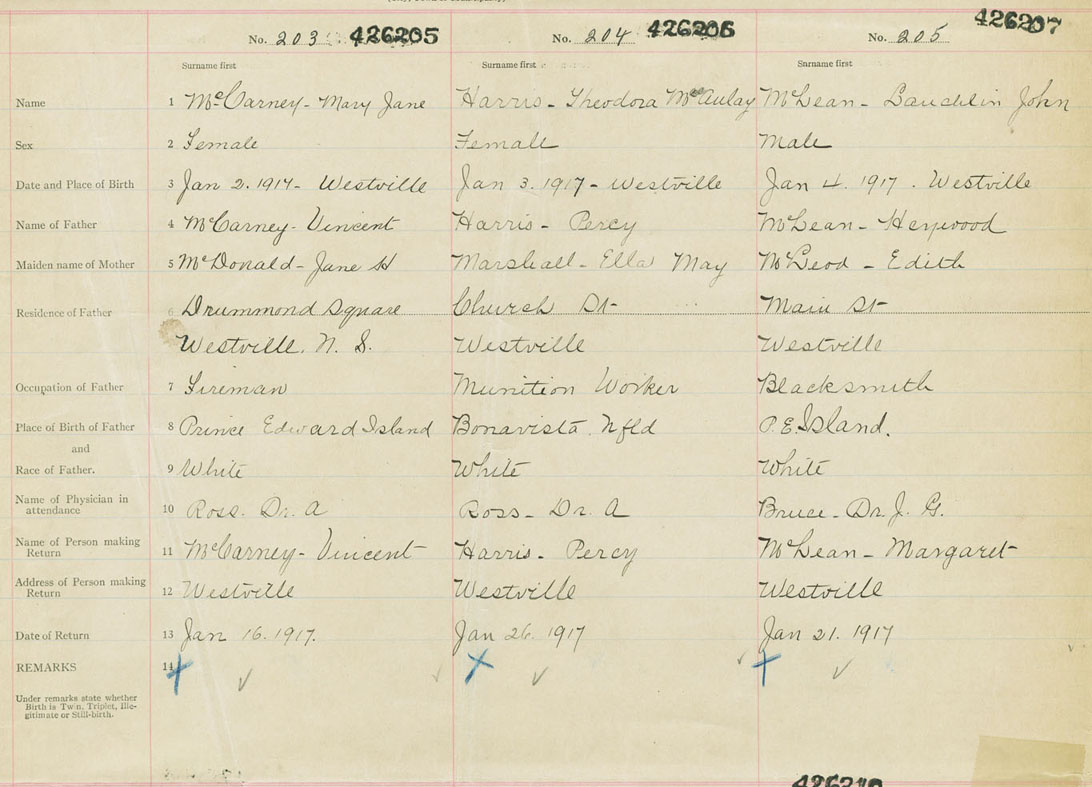 No. 203 426205 No. 204 426206 No. 205 426207
Surname first Surname first Surname first
Name 1 McCarney - Mary Jane Harris - Theodora McAulay McLean - Lauchlin John
Sex 2 Female Female Male
Date and Place of Birth 3 Jan 2. 1917 - Westville Jan 3. 1917 - Westville Jan 4. 1917. Westville
Name of Father 4 McCarney - Vincent Harris - Percy McLean - Heywood
Maiden name of Mother 5 McDonald - Jane H Marshall - Ella May McLeod - Edith
Residence of Father 6 Drummond Square Church St Main St
Westville. N. S. Westville Westville
Occupation of Father 7 Fireman Munition Worker Blacksmith
Place of Birth of Father 8 Prince Edward Island Bonavista Nfld P.E. Island.
and
Race of Father. 9 White White White
Name of Physician in
attendance 10 Ross. Dr. A Ross - Dr. A Bruce - Dr. J. G.
Name of Person making
Return 11 McCarney - Vincent Harris - Percy McLean - Margaret
Address of Person making
Return 12 Westville Westville Westville
Date of Return 13 Jan 16. 1917. Jan 26. 1917 Jan 21. 1917
REMARKS 14
Under remarks state whether
Birth is Twin, Triplet, Ille-
gitimate or Still-birth.